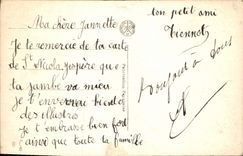 Ma chère Jannette
Je te remercie de ta carte
de St Nicola j'espère que
ta jambe va mieu
Je t'enverrai bientot
des illustrés
Je t'embrasse bien fort
ainsi que toute ta famille
ton petit ami
Bonjour à tous